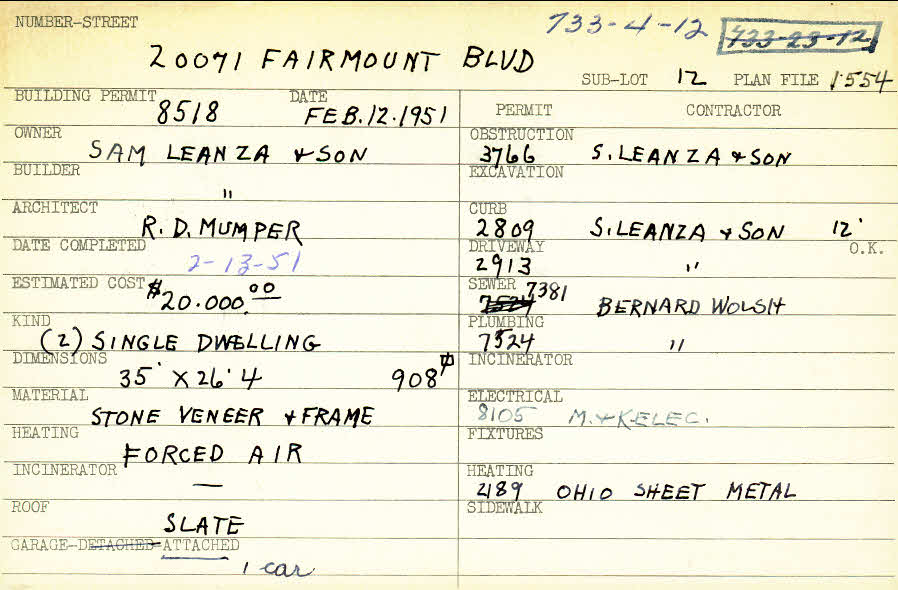 NUMBER-STREET
733-4-12 733-23-12
20071 FAIRMOUNT BLVD
SUB-LOT 12 PLAN FILE 1554
BUILDING PERMIT 8518 DATE FEB.12.1951
PERMIT CONTRACTOR
OWNER SAM LEANZA & SON
OBSTRUCTION 3766 S. LEANZA & SON
BUILDER "
EXCAVATION
ARCHITECT R. D. MUMPER
CURB 2809 S. LEANZA & SON 12' O.K.
DATE COMPLETED 2-13-51
DRIVEWAY 2913 "
ESTIMATED COST $20.000.00
SEWER 7524 7381 BERNARD WOLSH
KIND (2) SINGLE DWELLING
PLUMBING 7524 "
DIMENSIONS 35' X 26' 4 908
INCINERATOR
MATERIAL STONE VENEER & FRAME
ELECTRICAL 8105 M. & K-ELEC.
HEATING FORCED AIR
FIXTURES
INCINERATOR —
HEATING 2189 OHIO SHEET METAL
ROOF SLATE
SIDEWALK
GARAGE-DETACHED-ATTACHED
1 car